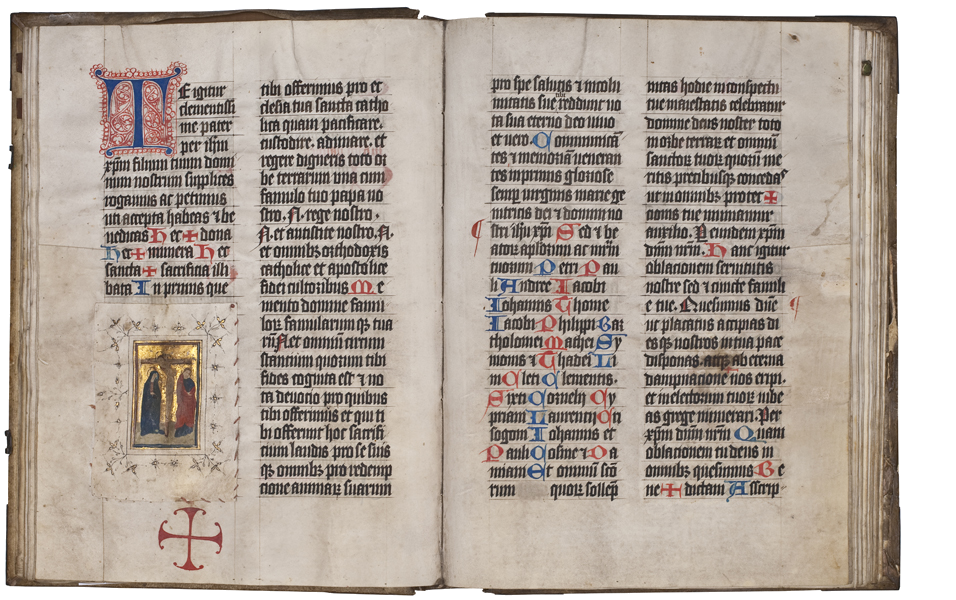 TE igitur
clementissi
me pater
per ihm
xpm filium tuum domi
num nostrum supplices
rogamus ac petimus
uti accepta habeas et be
nedicas h ec + dona
h ec + munera h ec
sancta + sacrificia illi
bata In primis que
tibi offerimus pro ec
clesia tua sancta catho
lica quam pacificare.
custodire. adunare. et
regere digneris toto or
be terrarum una cum
famulo tuo papa no
stro .N. rege nostro.
N. et antistite nostro .N.
et omnibus orthodoxis
catholice et apostolice
fidei cultoribus Me
mento domine famu
lorum famularumque tua
rum N. et omnium circum
stantium quorum tibi
fides cognita est et no
ta devocio pro quibus
tibi offerimus et qui ti
bi offerunt hoc sacrifi
cium laudis pro se suis
que omnibus pro redemp
cione animarum suarum
pro spe salutis et incolu
mitatis sue tibi reddunt vo
ta sua eterno deo vivo
et vero. Communican
tes et memoriam veneran
tes inprimis gloriose
semper virginis marie ge
nitricis dei et domini no
stri ihu xpi Sed et be
atorum apostolorum ac martirum
tuorum Petri Pau
li Andree Iacobi
Iohannis Thome
Iacobi Philippi Bar
tholomei Mathei Sy
monis et Thadei Li
ni Cleti Clementis.
Sixti Cornelij Cy
priani Laurentij Cri
sogoni Iohannis et
Pauli Cosme et Da
miani Et omnium sanc
torum quorum
meritis precibusque concedas
ut in omnibus protec +
tionis tue muniamur
auxilio. Per eundem xpm
dnm nrm. Hanc igitur
oblacionem servitutis
nostre sed et cuncte famili
e tue. Quesumus dne
ut placatus accipias di
es que nostros in tua pace
disponas. atque ab eterna
dampnacione nos eripi.
et in electorum tuorum iube
as grege numerari. Per
xpm dnm nrm Quam
oblacionem tu deus in
omnibus quesumus Be
ne + dictam Ascrip